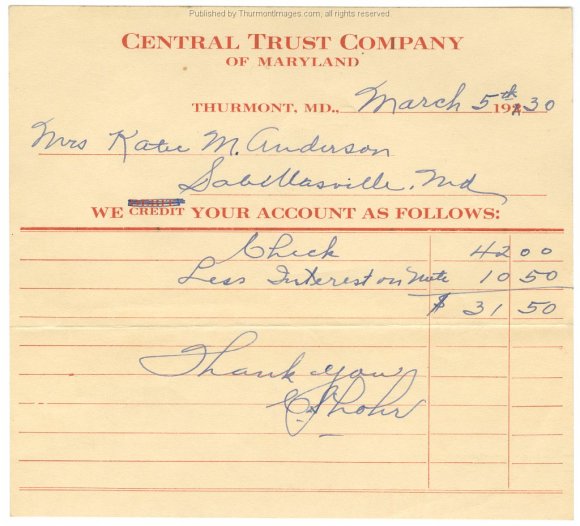 Published by ThurmontImages.com, all rights reserved
CENTRAL TRUST COMPANY
OF MARYLAND
THURMONT, MD., March 5th 192 30
Mrs Katie M. Anderson
Sabillasville, Md
WE CREDIT YOUR ACCOUNT AS FOLLOWS:
Check 42 00
Less Interest on Note 10 50
$ 31 50
Thank you